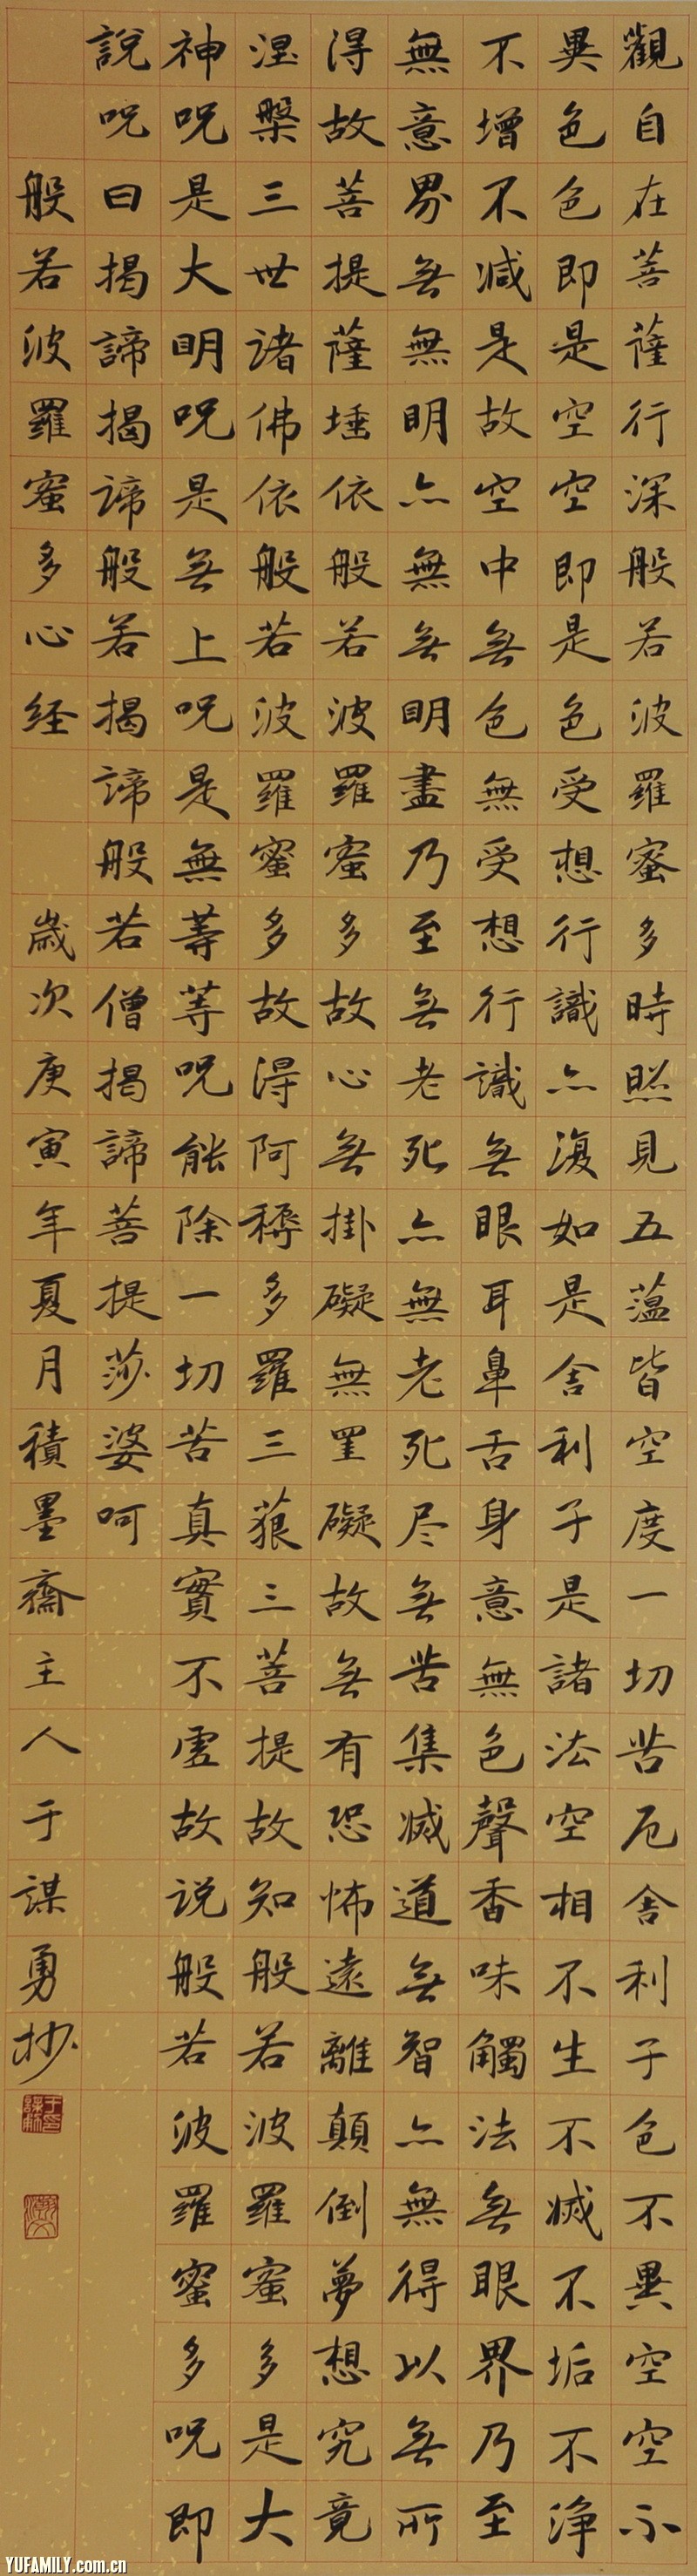 觀自在菩薩行深般若波羅蜜多時照見五蕰皆空度一切苦厄舍利子色不異空空不
異色色即是空空即是色受想行識亦復如是舍利子是諸法空相不生不滅不垢不淨
不增不減是故空中無色無受想行識無眼耳鼻舌身意無色聲香味觸法無眼界乃至
無意界無無明亦無無明盡乃至無老死亦無老死尽無苦集滅道無智亦無得以無所
得故菩提薩埵依般若波羅蜜多故心無掛礙無罣礙故無有恐怖遠離顛倒夢想究竟
涅槃三世诸佛依般若波羅蜜多故得阿耨多羅三藐三菩提故知般若波羅蜜多是大
神呪是大明呪是無上呪是無等等呪能除一切苦真實不虛故说般若波羅蜜多呪即
說呪曰揭諦揭諦般若揭諦般若僧揭諦菩提莎婆呵
般若波羅蜜多心経 歲次庚寅年夏月積墨齋主人于謀勇抄
YUFAMILY.com.cn